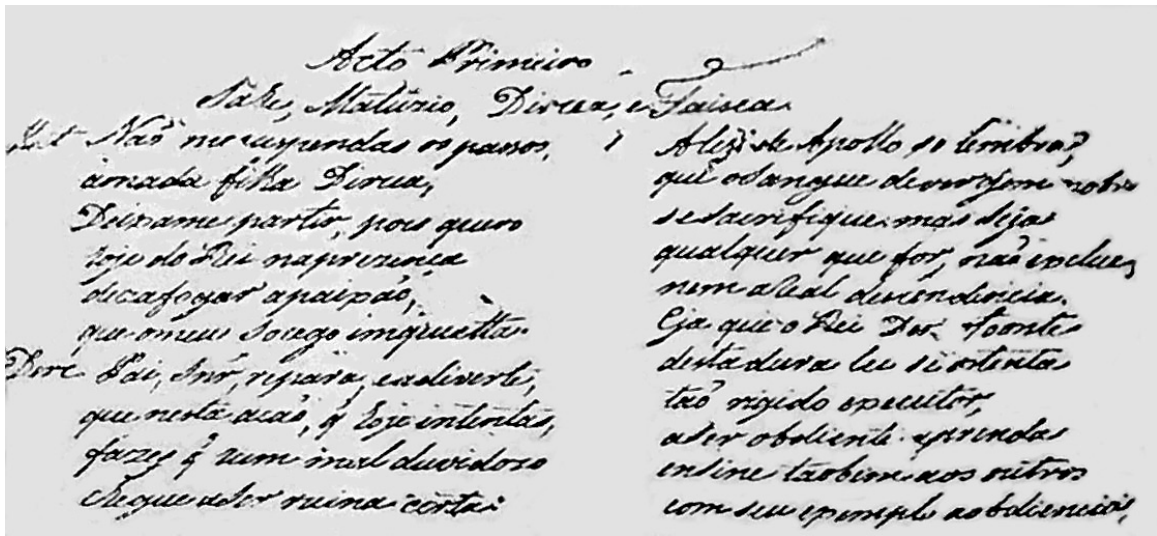 Acto Primeiro
Sahe, Matuzio, Dircea, e Faisca
Mat Não me suspendas os passos,
amada filha Dircea,
Deixame partir, pois quero
hoje do Rei na prezença
desafogar a paixão,
que o meu socego inquietta
Dirc Pai, Snr, repara, e adverte,
que nesta acaõ, q̃ hoje intentas,
fazes q̃ hum mal duvidozo
chegue a ser ruina certa.
A lei de Apollo so lembra,
que o Sangue de virgem nobre
se sacrifique mas seja
qualquer que for, naõ exclue,
nem a Real descendencia.
E ja que o Rei Demofoonte
desta dura lei se ostenta
taõ rigido executor,
a ser obdiente aprenda
ensine taõbem aos outros
com seu exemplo a obdiencia,